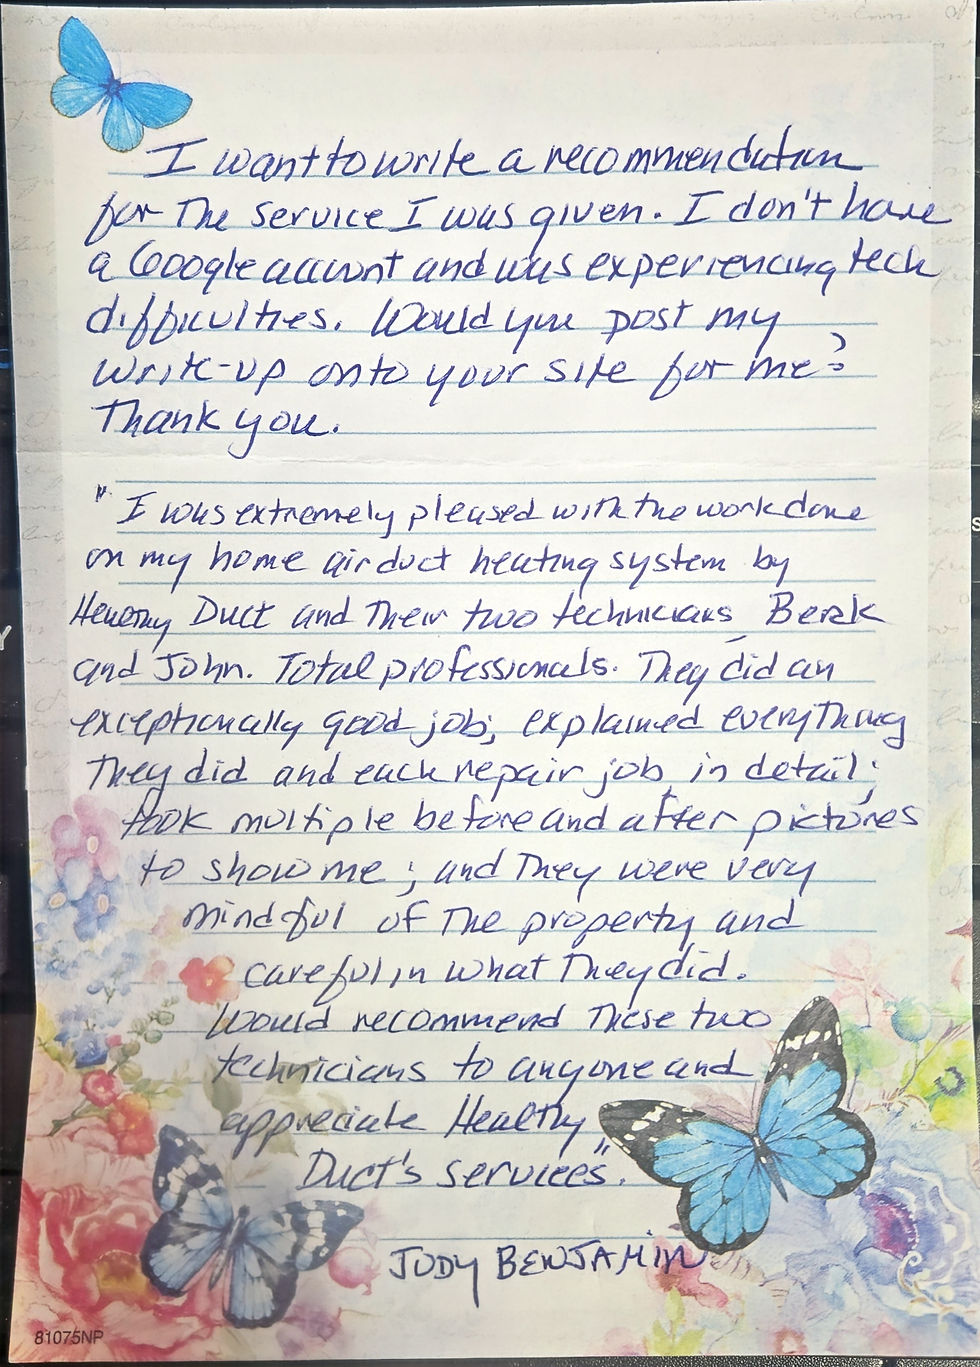 I want to write a recommendation
for The service I was given. I don't have
a Google account and was experiencing tech
difficulties. Would you post my
write-up onto your site for me?
Thank you.
"I was extremely pleased with the work done
on my home air duct heating system by
Healthy Duct and Their two technicians, Berk
and John. Total professionals. They did an
exceptionally good job; explained everything
They did and each repair job in detail;
took multiple before and after pictures
to show me; and They were very
mindful of The property and
careful in what They did.
Would recommend These two
technicians to anyone and
appreciate Healthy
Duct's services".
JUDY BENJAMIN
81075NP